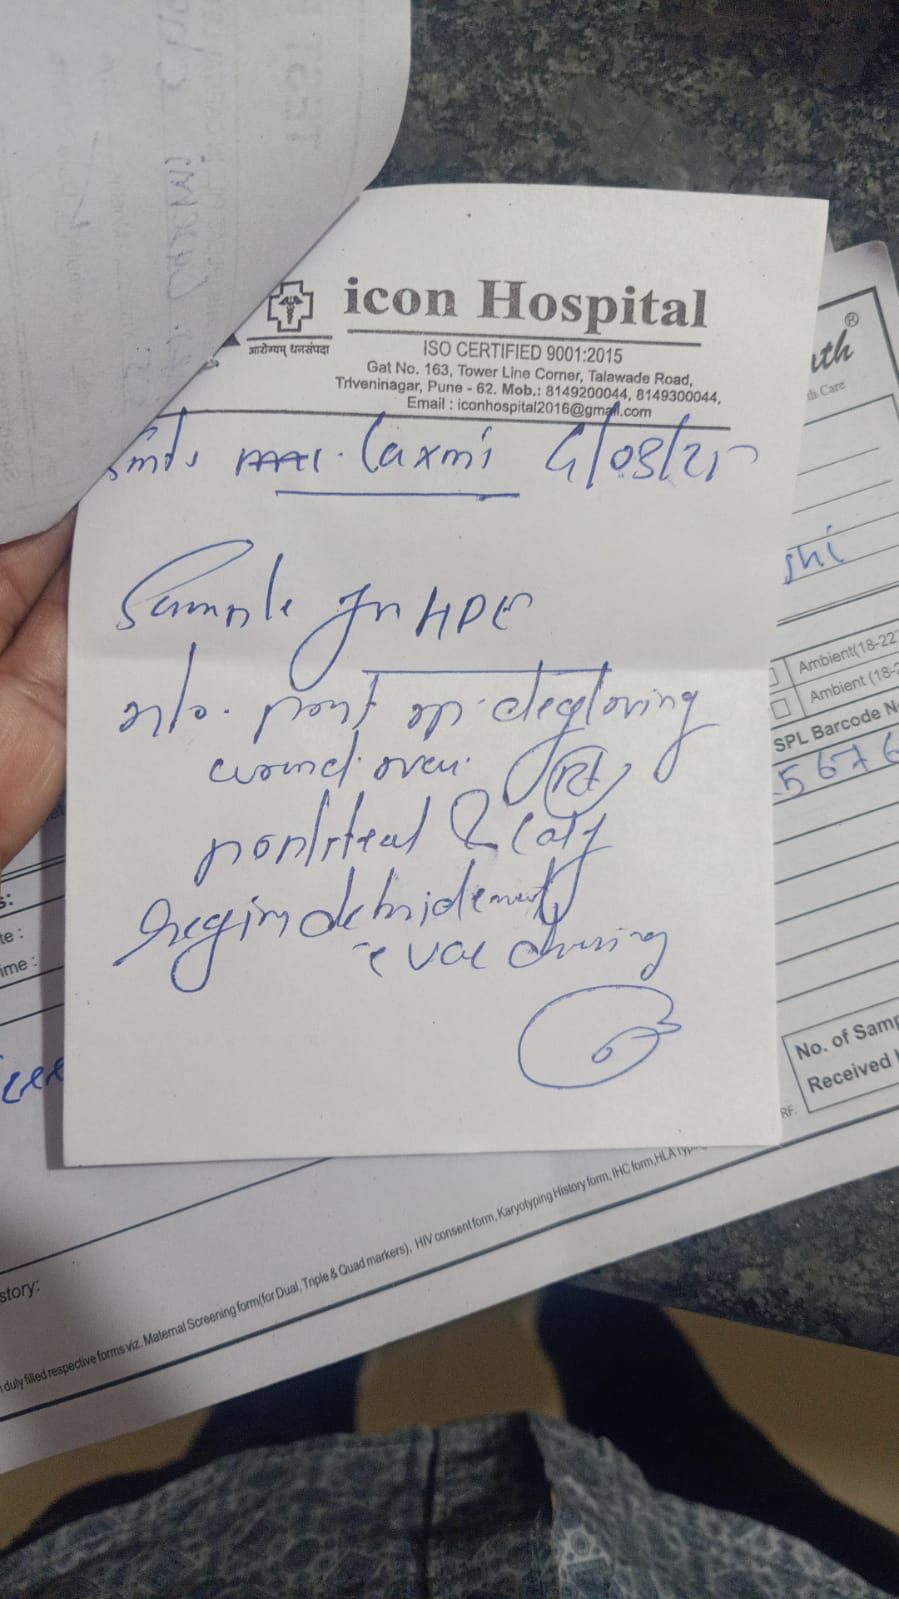 icon Hospital
आरोग्यम् धनसंपदा
ISO CERTIFIED 9001:2015
Gat No. 163, Tower Line Corner, Talawade Road,
Triveninagar, Pune - 62. Mob.: 8149200044, 8149300044,
Email : iconhospital2016@gmail.com
Laxmi
Sample for HPE
post op degloving
wound over Rt
popliteal & calf
region debridement
c vac dressing
th Care
shi
Ambient(18-22
Ambient (18-2
SPL Barcode N
5676
No. of Samp
Received
RF.
story:
duly filled respective forms viz. Maternal Screening form(for Dual, Triple & Quad markers), HIV consent form, Karyotyping History form, IHC form,HLA Typin